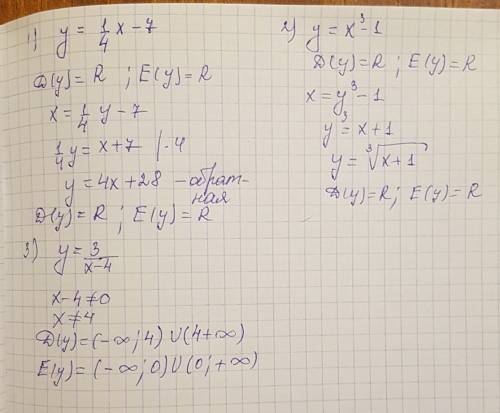 1) y = 1/4 x - 7
D(y) = R ; E(y) = R
x = 1/4 y - 7
1/4 y = x + 7 | · 4
y = 4x + 28 - обрат-
ная
D(y) = R ; E(y) = R
2) y = x³ - 1
D(y) = R ; E(y) = R
x = y³ - 1
y³ = x + 1
y = ∛(x + 1)
D(y) = R ; E(y) = R
3) y = 3/(x - 4)
x - 4 ≠ 0
x ≠ 4
D(y) = (-∞; 4) ∪ (4 + ∞)
E(y) = (-∞; 0) ∪ (0; +∞)